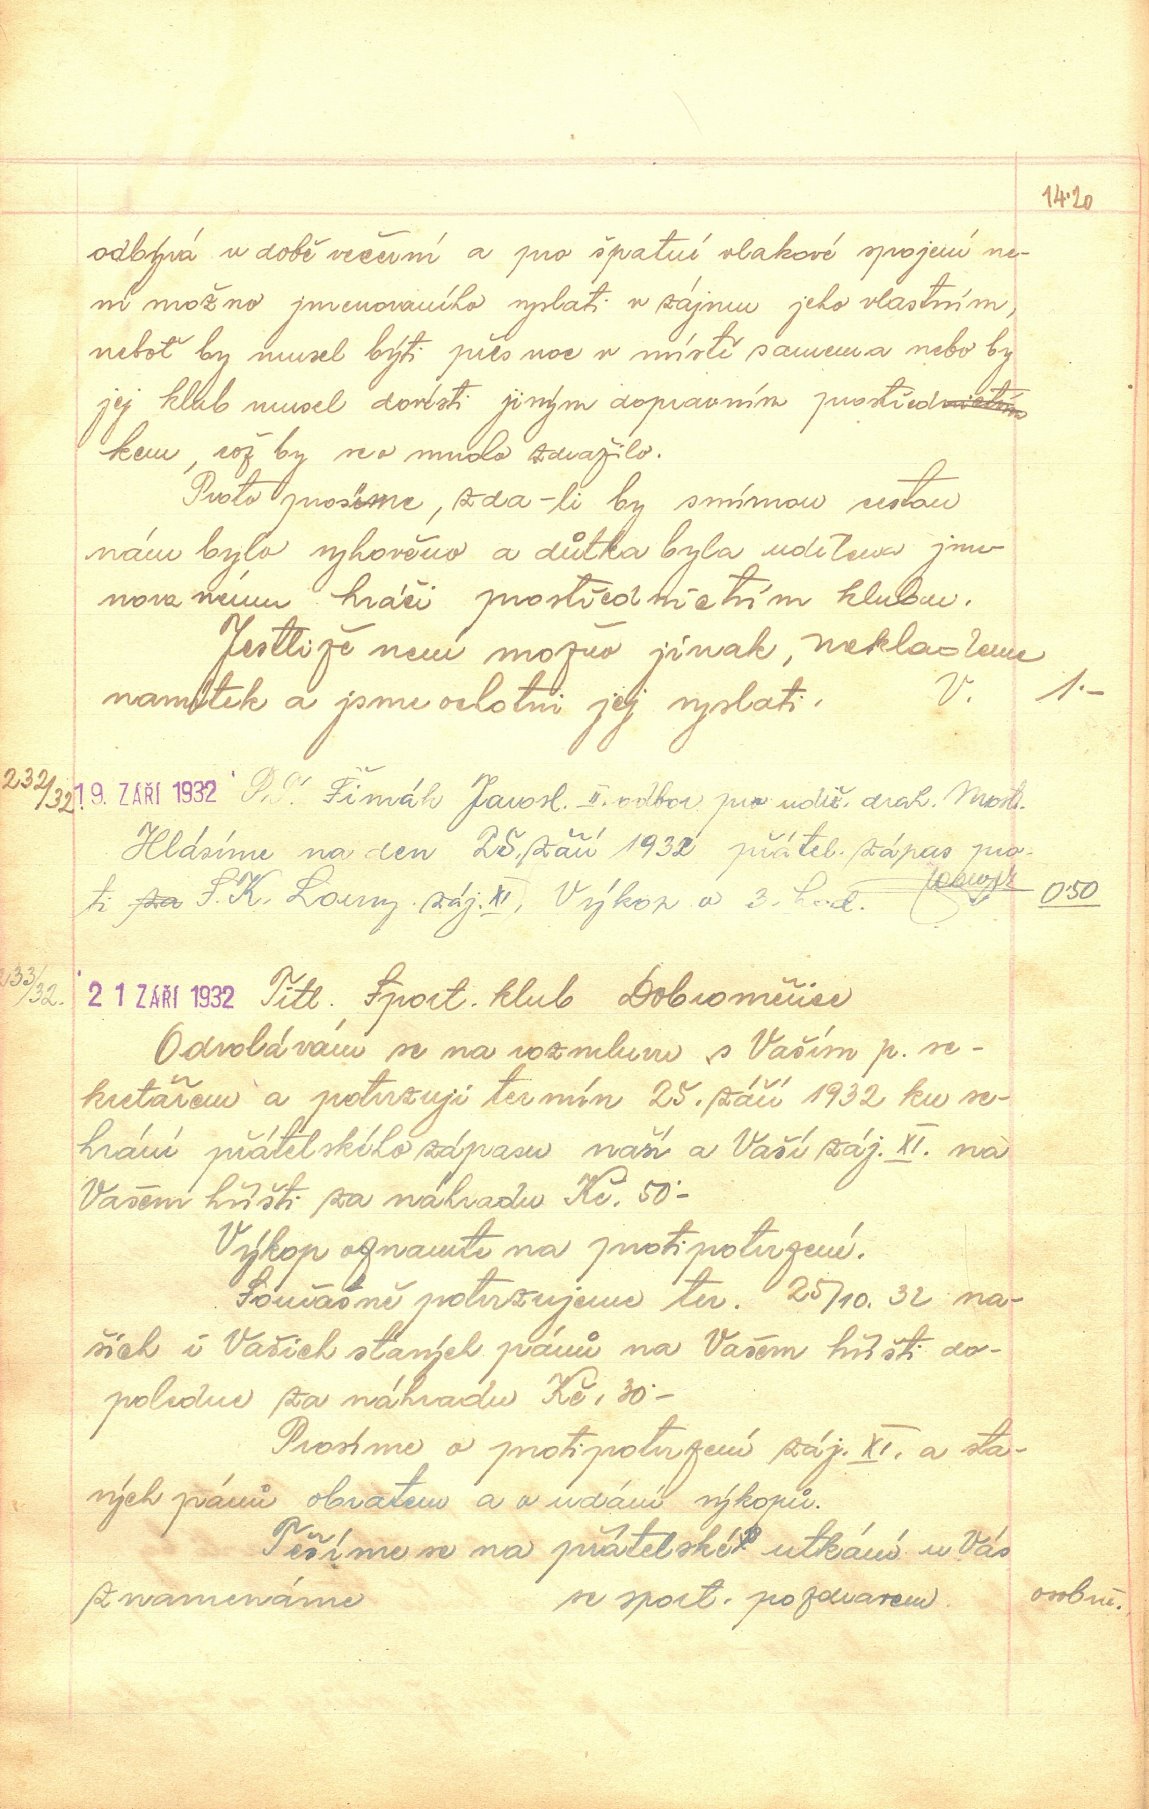 14·20
odbývá v době večerní a pro špatné vlakové spojení ne-
ní možno jmenovaného vyslati v zájmu jeho vlastním,
neboť by musel býti přes noc v místě samem a nebo by
jej klub musel dovésti jiným dopravním prostřednictvím
kem, což by se o mnoho zdražilo.
Proto prosíme, zda-li by smírnou cestou
nám bylo vyhověno a důtka byla udělena jme-
novanému hráči prostřednictvím klubu.
Jestliže není možno jinak, neklademe
namítek a jsme ochotni jej vyslati. V. 1.-
232/32 19. ZÁŘÍ 1932 P.T. Šimák Jarosl. II. odbor pro uděl. drah. Most.
Hlásíme na den 25. září 1932 přátel. zápas pro-
ti za S.K. Louny záj. XI, Výkop v 3. hod. 0·50
233/32. 21 ZÁŘÍ 1932 Titl. Sport. klub Dobroměřice
Odvolávám se na rozmluvu s Vaším p. se-
kretářem a potvrzuji termín 25. září 1932 ku se-
hrání přátelského zápasu naší a Vaší záj. XI. na
Vašem hřišti za náhradu Kč. 50·-
Výkop oznamte na protipotvrzení.
Současně potvrzujeme ter. 25/10. 32 na-
šich i Vašich starých pánů na Vašem hřišti do-
poledne za náhradu Kč. 30·-
Prosíme o protipotvrzení záj. XI. a sta-
rých pánů obratem a o udání výkopů.
Těšíme se na přátelské utkání u Vás
znamenáme se sport. pozdravem osobně.